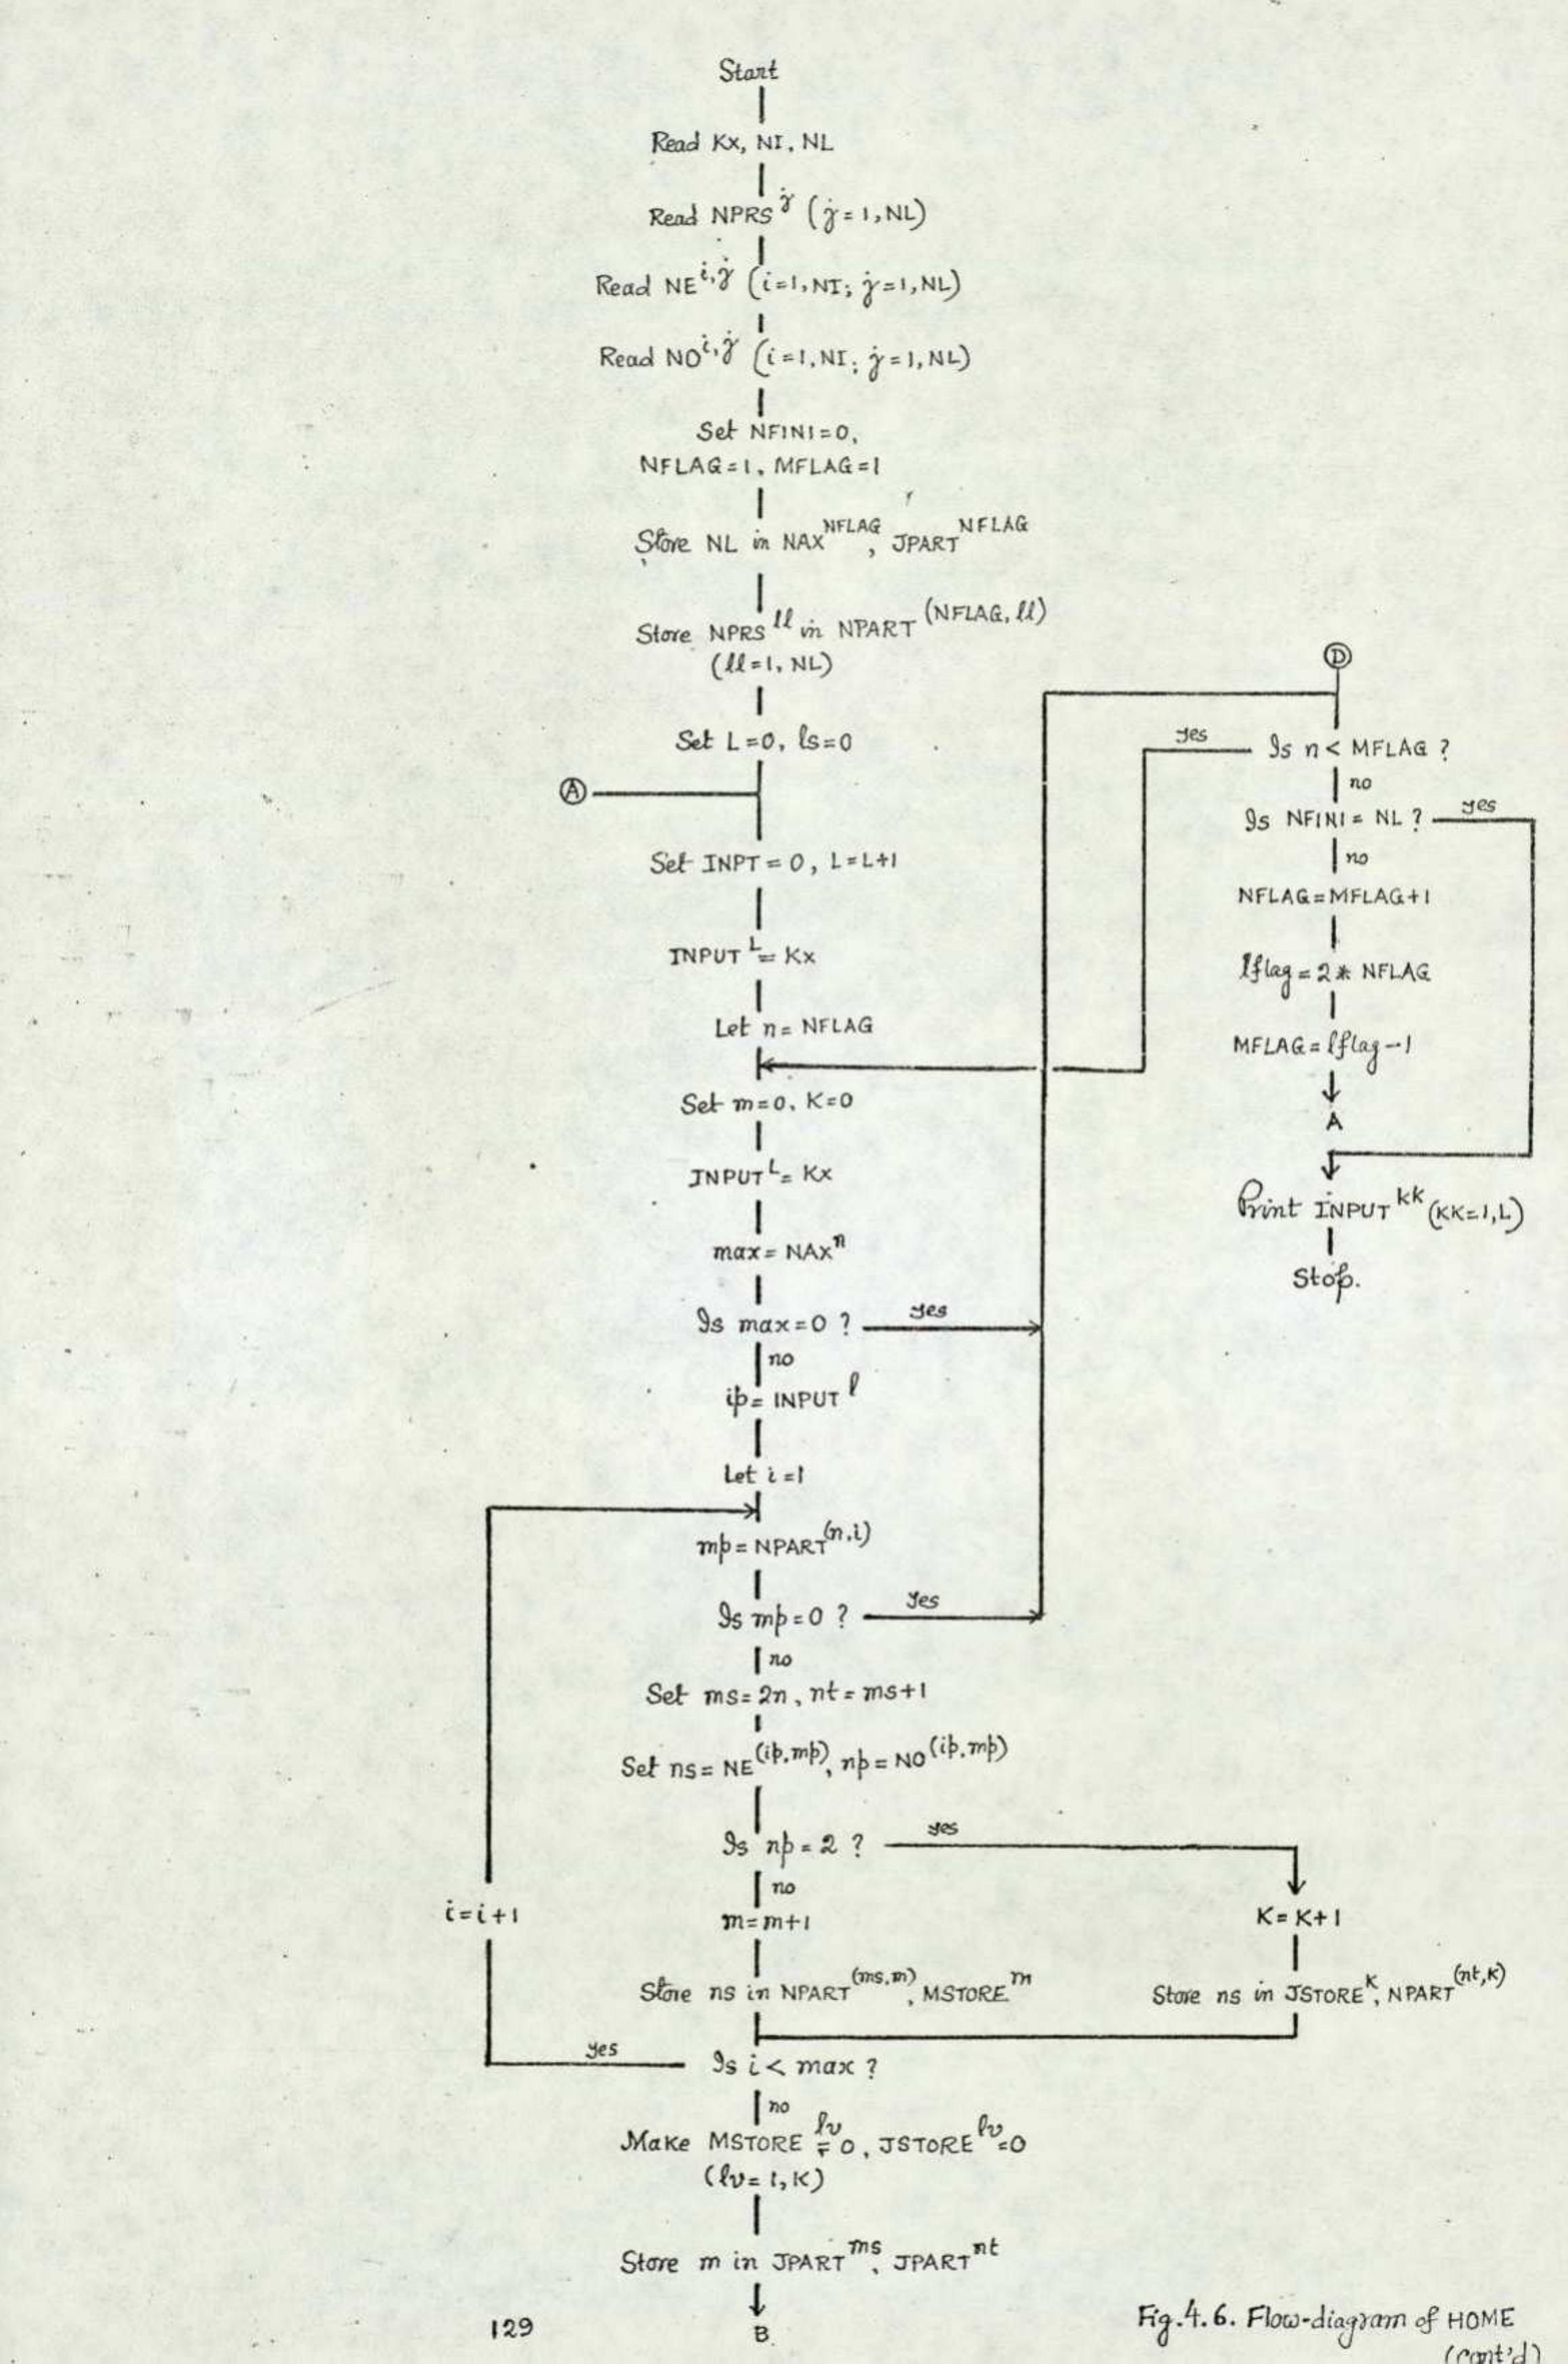 Start
Read Kx, NI, NL
Read NPRS^j (j=1,NL)
Read NE^i,j (i=1,NI; j=1,NL)
Read NO^i,j (i=1,NI; j=1,NL)
Set NFINI=0,
NFLAG=1, MFLAG=1
Store NL in NAX^NFLAG, JPART^NFLAG
Store NPRS^ll in NPART^(NFLAG, ll)
(ll=1, NL)
Set L=0, ls=0
A
Set INPT=0, L=L+1
INPUT^L=Kx
Let n=NFLAG
Set m=0, K=0
INPUT^L=Kx
max=NAX^n
Is max=0 ?
yes
no
ip=INPUT^l
Let i=1
mp=NPART^(n,i)
Is mp=0 ?
yes
no
Set ms=2n, nt=ms+1
Set ns=NE^(ip,mp), np=NO^(ip,mp)
Is np=2 ?
yes
no
i=i+1
m=m+1
K=K+1
Store ns in NPART^(ms,m), MSTORE^m
Store ns in JSTORE^K, NPART^(nt,K)
yes
Is i< max ?
no
Make MSTORE^lv=0, JSTORE^lv=0
(lv=1,K)
Store m in JPART^ms, JPART^nt
B
D
yes
Is n< MFLAG ?
no
Is NFINI=NL ?
yes
no
NFLAG=MFLAG+1
lflag=2* NFLAG
MFLAG=lflag-1
A
Print INPUT^kk (KK=1,L)
Stop.
129
Fig.4.6. Flow-diagram of HOME
(cont'd)